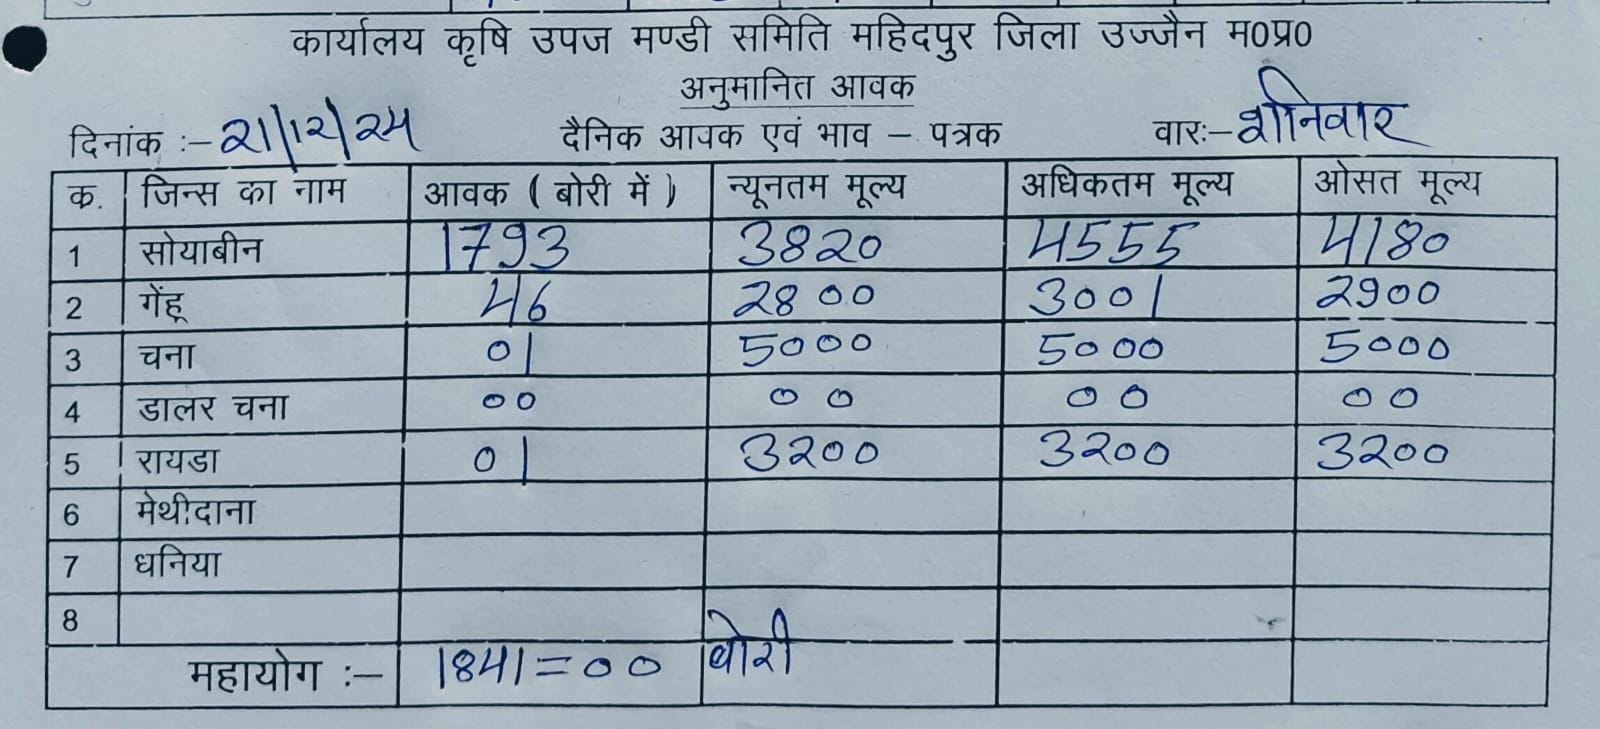 कार्यालय कृषि उपज मण्डी समिति महिदपुर जिला उज्जैन म0प्र0
अनुमानित आवक
दिनांक :- 21/12/24 दैनिक आवक एवं भाव - पत्रक वारः- शनिवार
क. जिन्स का नाम आवक ( बोरी में ) न्यूनतम मूल्य अधिकतम मूल्य ओसत मूल्य
1 सोयाबीन 1793 3820 4555 4180
2 गेंहू 46 2800 3001 2900
3 चना 01 5000 5000 5000
4 डालर चना 00 00 00 00
5 रायडा 01 3200 3200 3200
6 मेथीदाना
7 धनिया
8
महायोग :- 1841=00 बोरी